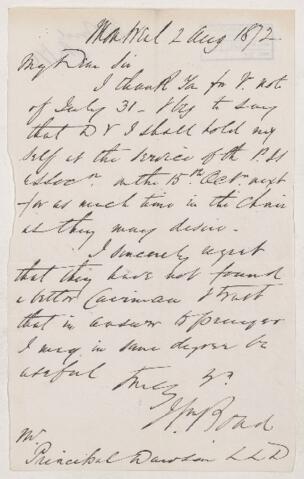 Montreal 2 Aug 1872
My Dear Sir
I thank You for Yr. note
of July 31 - & beg to say
that D V I shall hold my
self at the service of the P. S S
assocn. on the 15th. Octr. next
for as much time in the Chair
as they may desire -
I sincerely regret
that they have not found
a better Cairman & trust
that in answer to prayer
I may in some degree be
useful
truly Yrs
Principal Dawson L L D